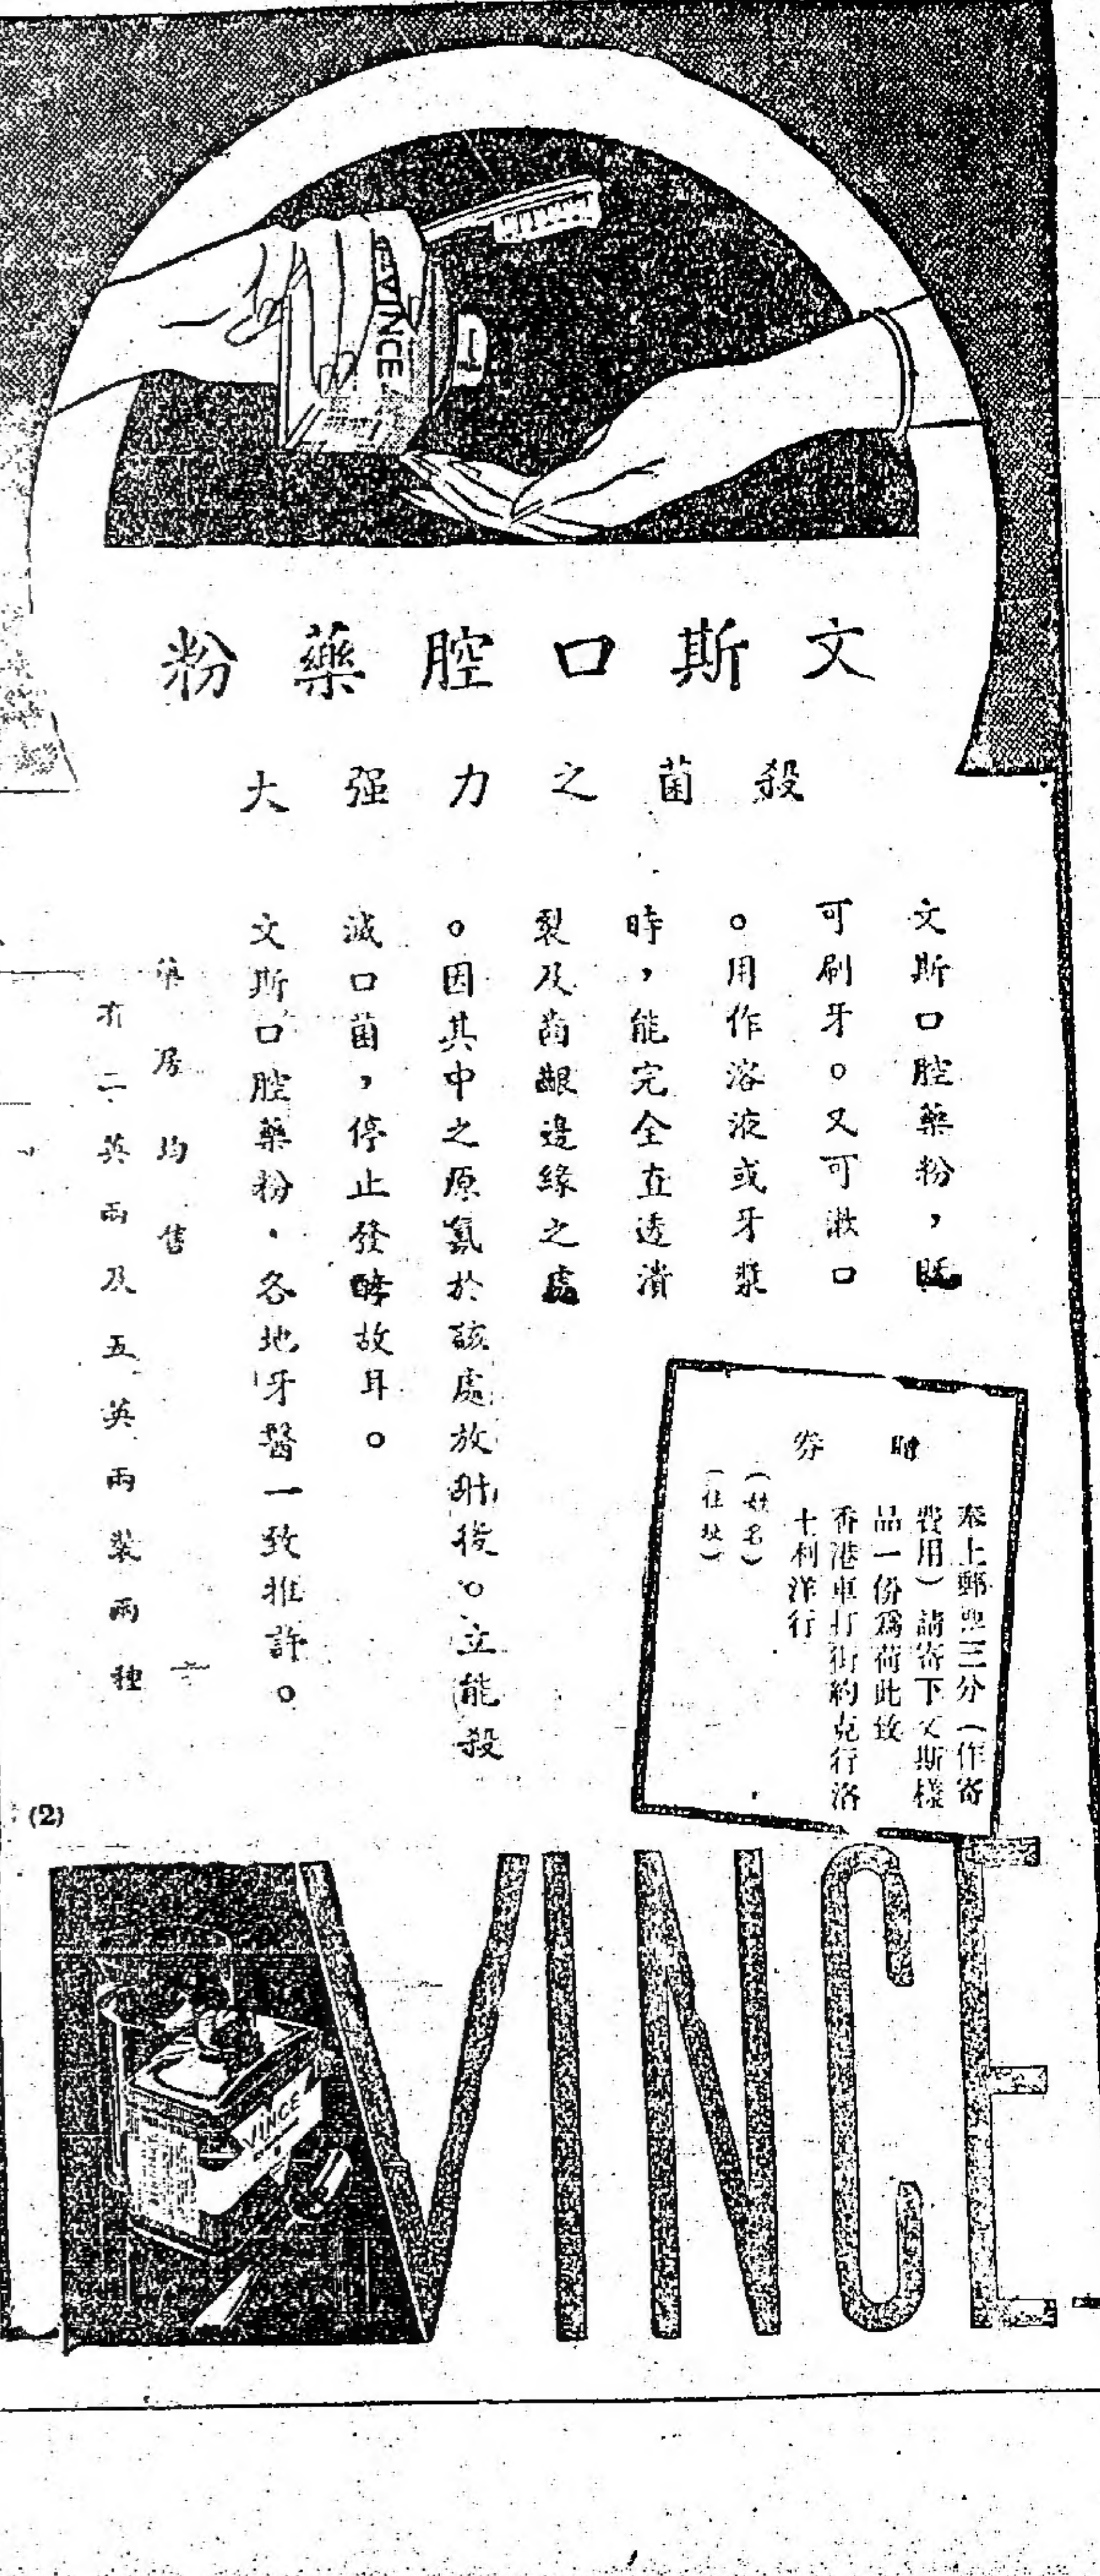 VINCE
文斯口腔藥粉
殺菌之力强大
文斯口腔藥粉，既
可刷牙。又可漱口
。用作溶液或牙漿
時，能完全直透潰
裂及齒齦邊緣之處
。因其中之原氣於該處放射後。立能殺
滅口菌，停止發酵故耳。
文斯口腔藥粉．各地牙醫一致推許。
藥房均售
有二英兩及五英兩裝兩種
贈券
奉上郵票三分（作寄
費用）請寄下文斯樣
品一份爲荷此致
香港車打街約克行洛
士利洋行
（姓名）
（住址）
(2)
VINCE
VINCE